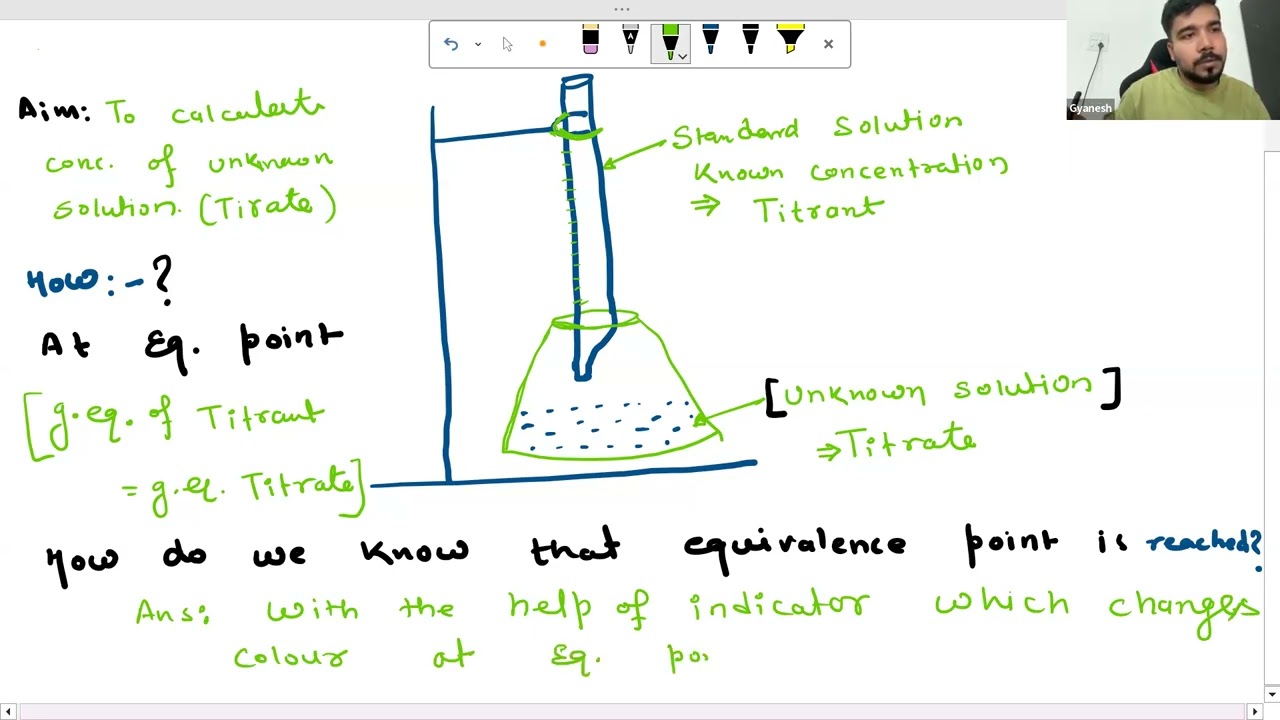 Gyanesh
Aim: To calculate
conc. of unknown
solution. (Tirate)
How:- ?
At Eq. point
[g.eq. of Titrant
= g.eq. Titrate]
Standard solution
Known concentration
⇒ Titrant
[unknown solution]
⇒ Titrate
How do we know that equivalence point is reached?
Ans: with the help of indicator which changes
colour at Eq. po